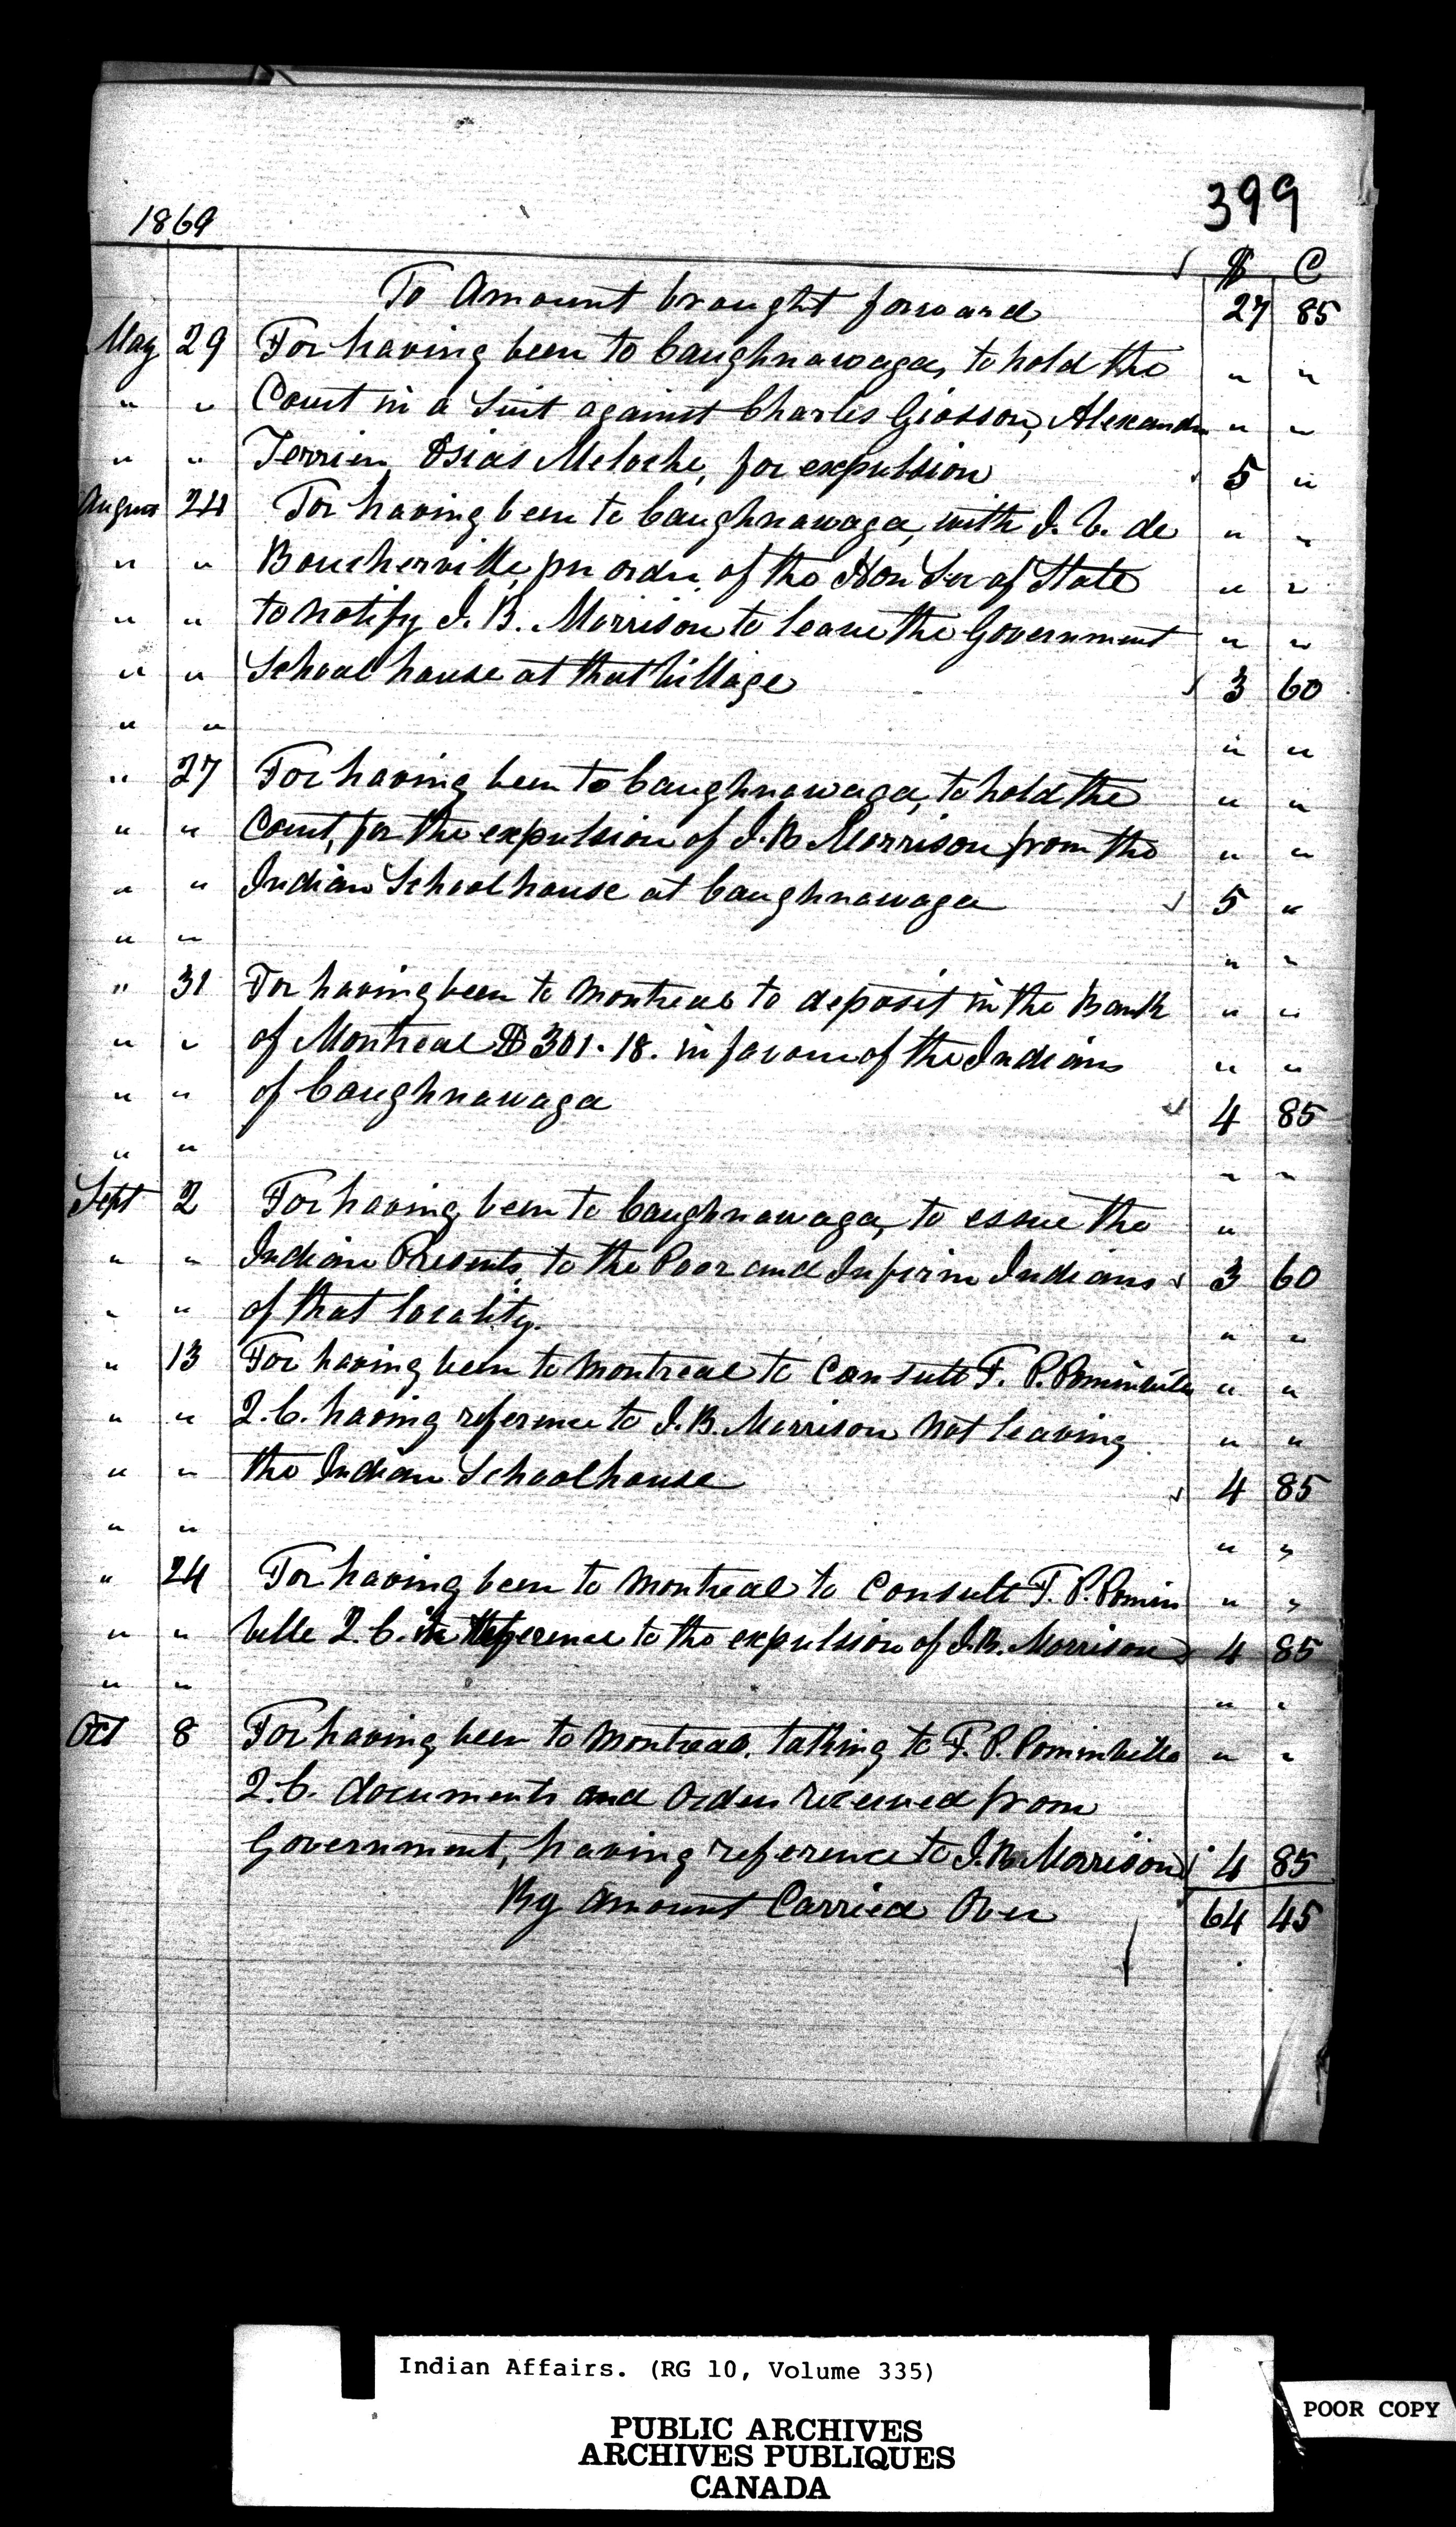 399
1869
$ C
To Amount brought forward 27 85
May 29 For having been to Caughnawaga, to hold the " "
" " Court in a Suit against Charles Giasson, Alexandre " "
" " Terrien Osias Meloche, for expulsion 5 "
August 24 For having been to Caughnawaga, with J. C. de " "
" " Boucherville, per order of the Hon Sec of State " "
" " to notify J. B. Morrison to leave the Government " "
" " School house at that Village 3 60
" " " "
" 27 For having been to Caughnawaga, to hold the " "
" " Court, for the expulsion of J. B Morrison from the " "
" " Indian School house at Caughnawaga 5 "
" " " "
" 31 For having been to Montreal to deposit in the Bank " "
" " of Montreal $301.18. in favour of the Indians " "
" " of Caughnawaga 4 85
" " " "
Sept 2 For having been to Caughnawaga, to essue the "
" " Indian Presents, to the Poor and Infirm Indians 3 60
" " of that locality. " "
" 13 For having been to Montreal to Consult F. P. Pominville " "
" " Q. C. having reference to J. B. Morrison not leaving " "
" " the Indian Schoolhouse 4 85
" " " "
" 24 For having been to Montreal to Consult F. P. Pomin " "
" " ville Q. C. in reference to the expulsion of J. B. Morrison 4 85
" " " "
Oct 8 For having been to Montreal. taking to F. P. Pominville " "
Q. C. documents and Orders received from
Government, having reference to J. B Morrison 4 85
By Amount Carried Over 64 45
Indian Affairs. (RG 10, Volume 335)
PUBLIC ARCHIVES
ARCHIVES PUBLIQUES
CANADA
POOR COPY